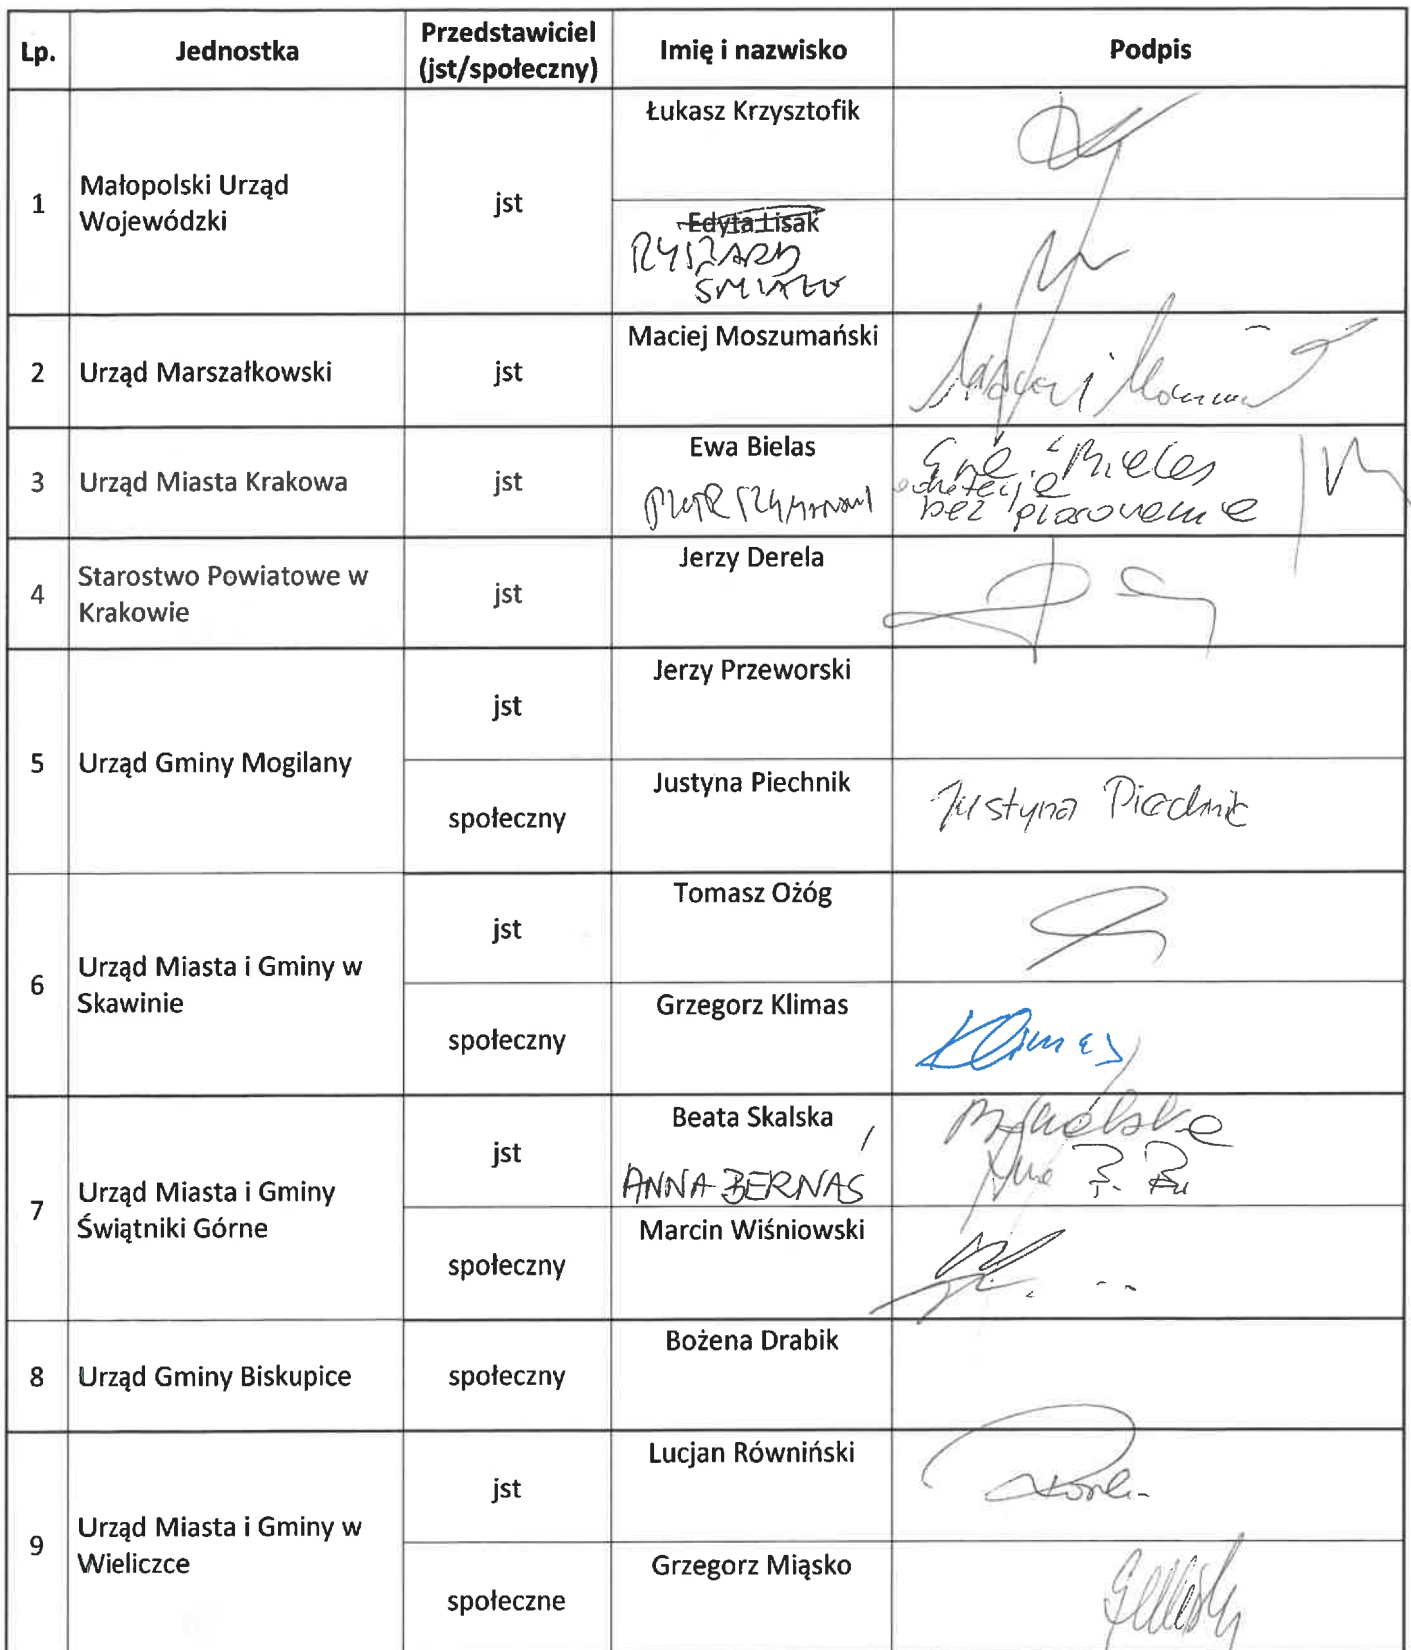 Lp. Jednostka Przedstawiciel (jst/społeczny) Imię i nazwisko Podpis
1 Małopolski Urząd Wojewódzki jst Łukasz Krzysztofik
Edyta Lisak
RYSZARD
ŚMIAŁO
2 Urząd Marszałkowski jst Maciej Moszumański
3 Urząd Miasta Krakowa jst Ewa Bielas Ewa Bielas
PIOTR
bez
4 Starostwo Powiatowe w Krakowie jst Jerzy Derela
5 Urząd Gminy Mogilany jst Jerzy Przeworski
społeczny Justyna Piechnik Justyna Piechnik
6 Urząd Miasta i Gminy w Skawinie jst Tomasz Ożóg
społeczny Grzegorz Klimas Klimas
7 Urząd Miasta i Gminy Świątniki Górne jst Beata Skalska BSkalska
ANNA BERNAŚ
społeczny Marcin Wiśniowski
8 Urząd Gminy Biskupice społeczny Bożena Drabik
9 Urząd Miasta i Gminy w Wieliczce jst Lucjan Równiński
społeczne Grzegorz Miąsko